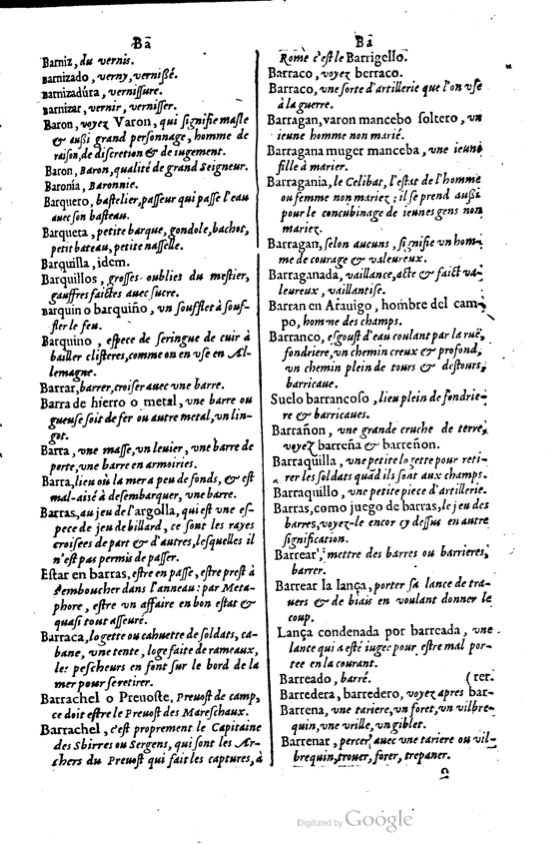 Ba
Barniz, du vernis.
Barnizado, verny, vernißé.
Barnizadúra, vernissure.
Barnizar, vernir, vernisser.
Baron, voyez Varon, qui signifie masle
& außi grand personnage, homme de
raison, de discretion & de iugement.
Baron, Baron, qualité de grand Seigneur.
Baronía, Baronnie.
Barquero, bastelier, passeur qui passe l'eau
auec son basteau.
Barqueta, petite barque, gondole, bachot,
petit bateau, petite nasselle.
Barquilla, idem.
Barquillos, grosses oublies du mestier,
gauffres faictes auec sucre.
Barquin o barquiño, un soufflet à souf-
fler le feu.
Barquino, espece de seringue de cuir à
bailler clisteres, comme on en use en Al-
lemagne.
Barrar, barrer, croiser auec une barre.
Barra de hierro o metal, une barre ou
gueuse soit de fer ou autre metal, un lin-
got.
Barra, une masse, un leuier, une barre de
porte, une barre en armoiries.
Barra, lieu où la mer a peu de fonds, & est
mal-aisé à desembarquer, une barre.
Barras, au jeu de l'argolla, qui est une es-
pece de jeu de billard, ce sont les rayes
croisees de part & d'autres, lesquelles il
n'est pas permis de passer.
Estar en barras, estre en passe, estre prest à
s'emboucher dans l'anneau: par Meta-
phore, estre un affaire en bon estat &
quasi tout asseuré.
Barraca, logette ou cahuette de soldats, ca-
bane, une tente, loge faite de rameaux,
les pescheurs en font sur le bord de la
mer pour se retirer.
Barrachel o Preuoste, Preuost de camp,
ce doit estre le Preuost des Mareschaux.
Barrachel, c'est proprement le Capitaine
des Sbirres ou Sergens, qui sont les Ar-
chers du Preuost qui fait les captures, à
Ba
Rome c'est le Barrigello.
Barraco, voyez berraco.
Barraco, une sorte d'artillerie que l'on use
à la guerre.
Barragan, varon mancebo soltero, un
ieune homme non marié.
Barragana muger manceba, une ieune
fille à marier.
Barragania, le Celibat, l'estat de l'homme
ou femme non mariez; il se prend außi
pour le concubinage de ieunes gens non
mariez.
Barragan, selon aucuns, signifie un hom-
me de courage & valeureux.
Barraganada, vaillance, acte & faict va-
leureux, vaillantise.
Barran en Arauigo, hombre del cam-
po, homme des champs.
Barranco, esgoust d'eau coulant par la ruë,
fondriere, un chemin creux & profond,
un chemin plein de tours & destours,
barricaue.
Suelo barrancoso, lieu plein de fondrie-
re & barricaues.
Barrañon, une grande cruche de terre,
voyez barreña & barreñon.
Barraquilla, une petite logette pour reti-
rer les soldats quad ils sont aux champs.
Barraquillo, une petite piece d'artillerie.
Barras, como juego de barras, le jeu des
barres, voyez-le encor cy dessus en autre
signification.
Barrear, mettre des barres ou barrieres,
barrer.
Barrear la lança, porter sa lance de tra-
uers & de biais en voulant donner le
coup.
Lança condenada por barreada, une
lance qui a esté iugee pour estre mal por-
tee en la courant.
Barreado, barré. (rer.
Barredera, barredero, voyez apres bar-
Barrena, une tariere, un foret, un vilbre-
quin, une vrille, un giblet.
Barrenar, percer auec une tariere ou vil-
brequin, trouer, forer, trepaner.
Digitized by Google